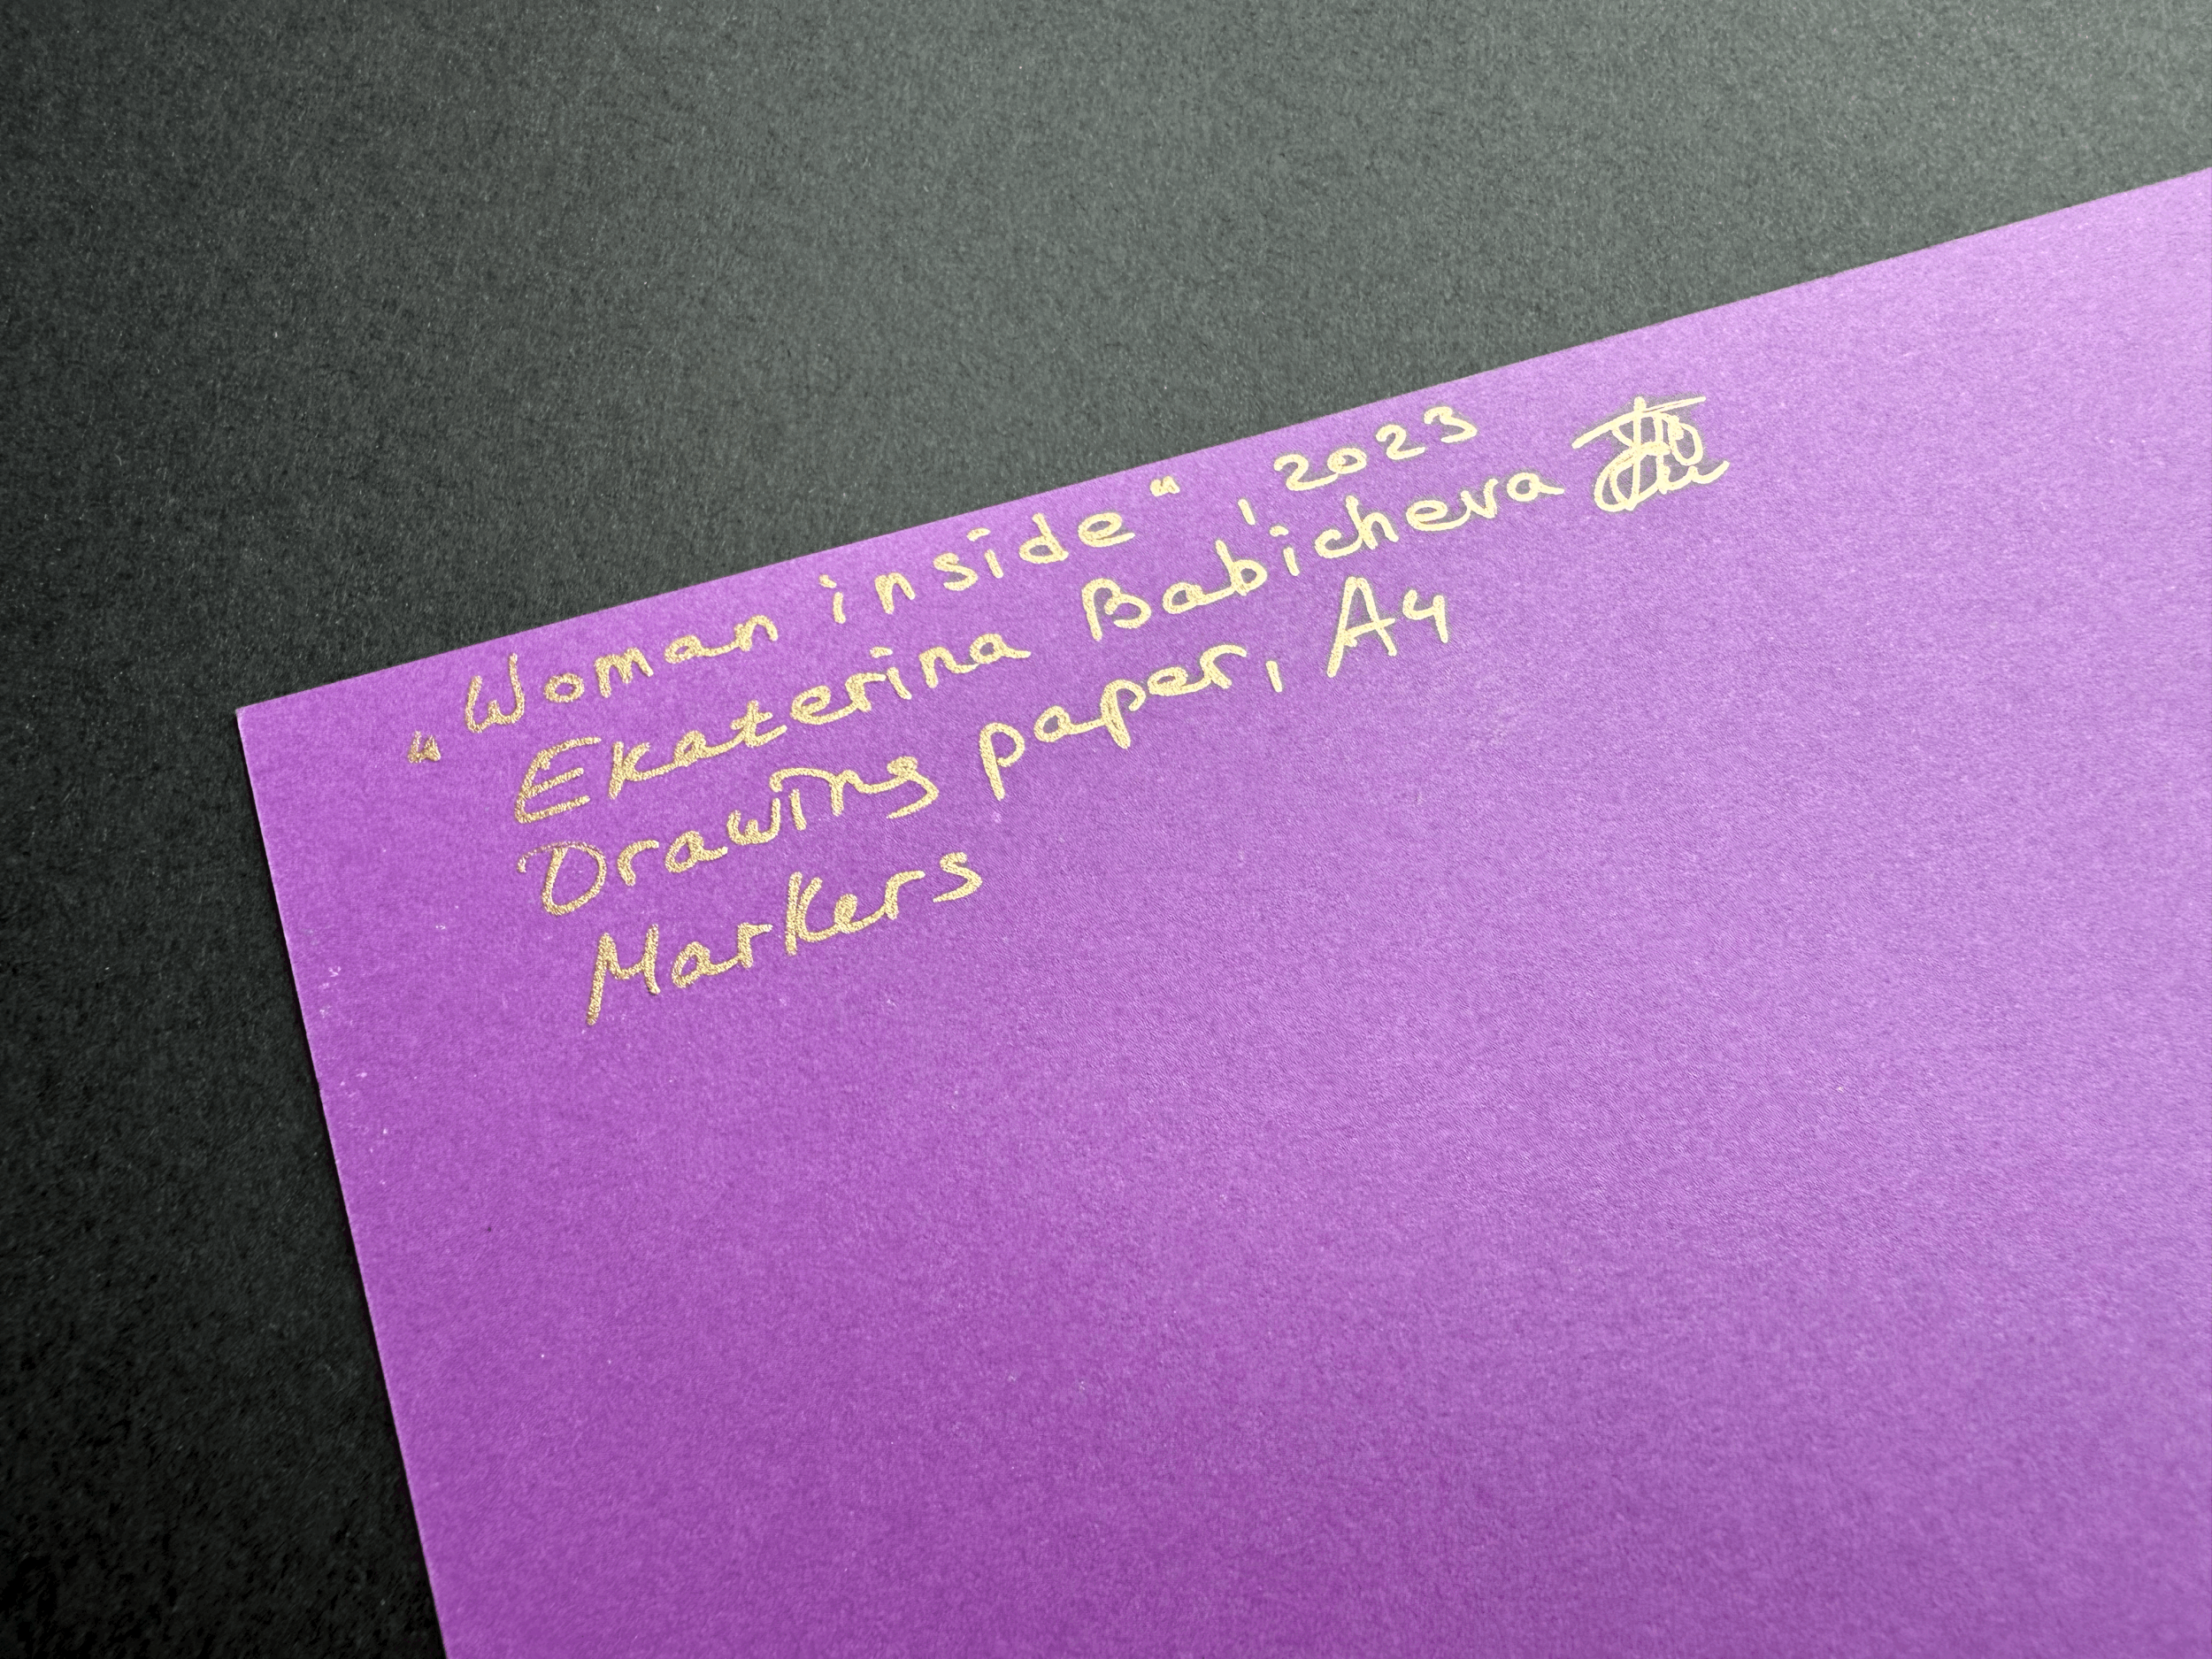 „Woman inside“, 2023
Ekaterina Babicheva
Drawing paper, A4
Markers